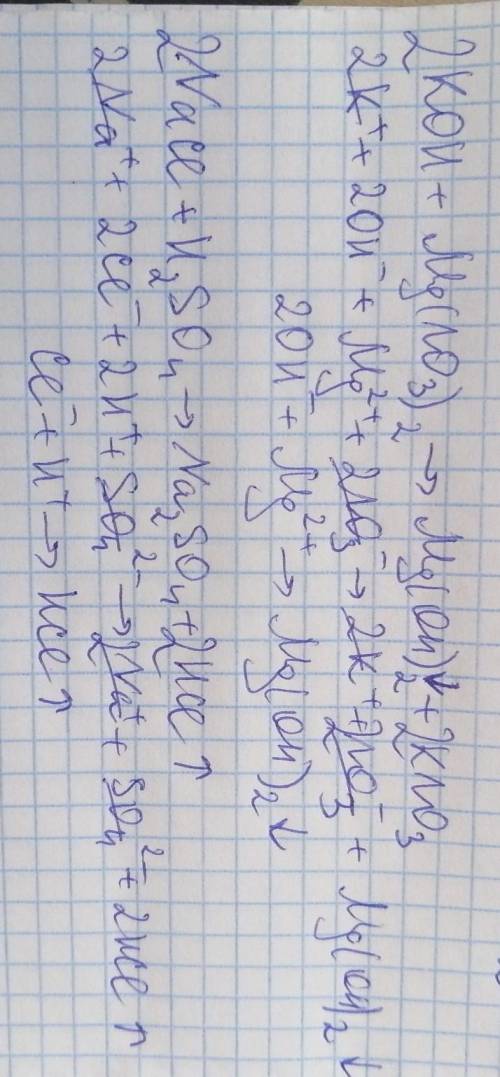 2KOH + Mg(NO₃)₂ → Mg(OH)₂↓ + 2KNO₃
2K⁺ + 2OH⁻ + Mg²⁺ + 2NO₃⁻ → 2K⁺ + 2NO₃⁻ + Mg(OH)₂↓
2OH⁻ + Mg²⁺ → Mg(OH)₂↓
2NaCl + H₂SO₄ → Na₂SO₄ + 2HCl↑
2Na⁺ + 2Cl⁻ + 2H⁺ + SO₄²⁻ → 2Na⁺ + SO₄²⁻ + 2HCl↑
Cl⁻ + H⁺ → HCl↑